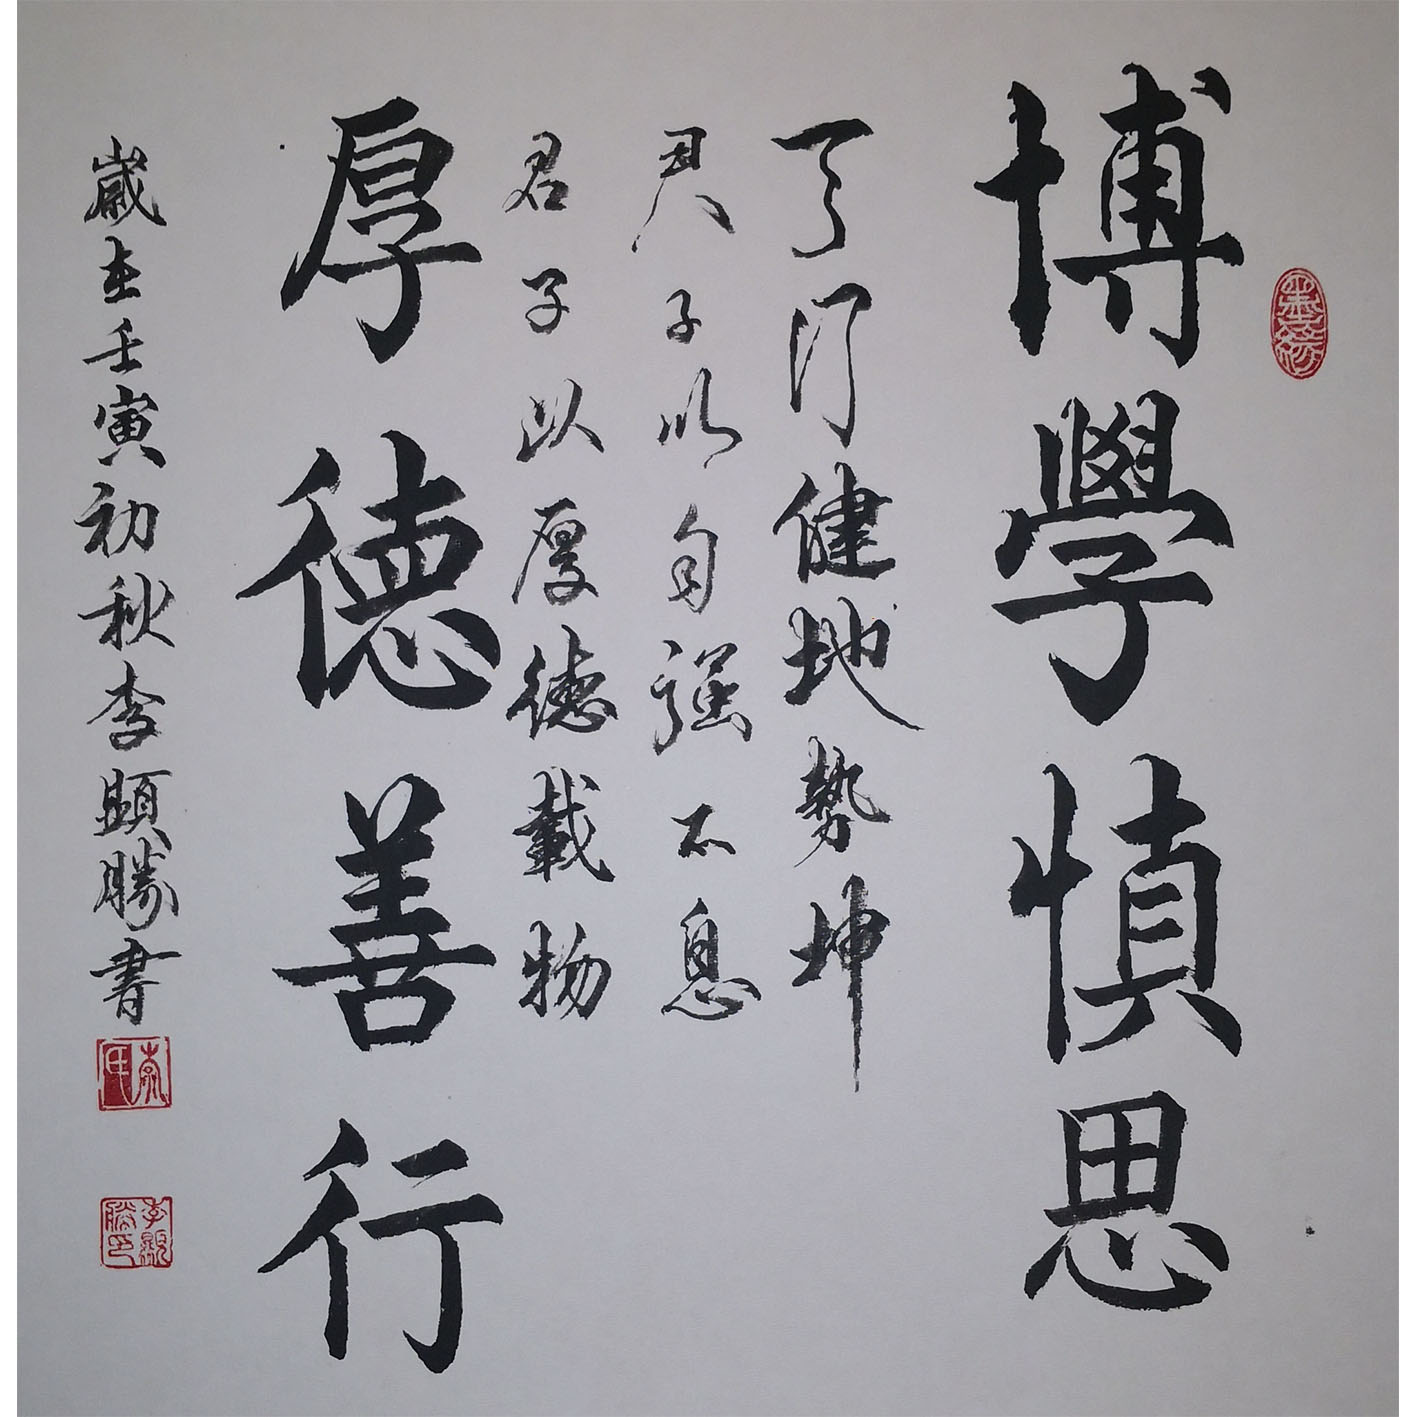 墨緣
博學慎思
天行健地勢坤
君子以自强不息
君子以厚德載物
厚德善行
歲在壬寅初秋李顯勝書
李氏
李顯勝印